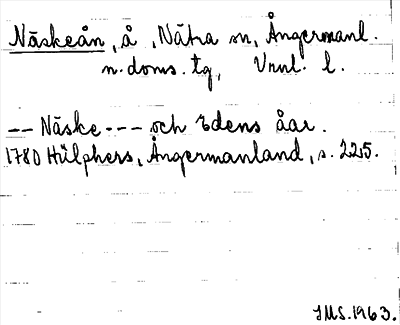 Näskeån, å, Nätra sn, Ångermanl.
n. doms. tg, Vnnl. l.
-- Näske --- och Edens åar.
1780 Hülphers, Ångermanland, s. 225.
IMS. 1963.